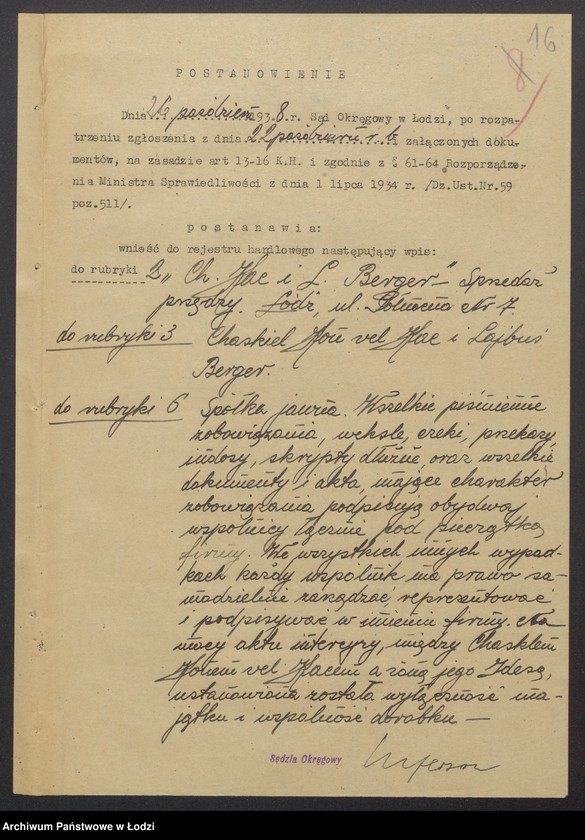 16
8
POSTANOWIENIE
Dnia 26 październ. 1938 r. Sąd Okręgowy w Łodzi, po rozpa-
trzeniu zgłoszenia z dnia 22 października r. b. i załączonych doku-
mentów, na zasadzie art 13-16 K.H. i zgodnie z § 61-64 Rozporządze-
nia Ministra Sprawiedliwości z dnia 1 lipca 1934 r. /Dz.Ust.Nr.59
poz.511/.
postanawia:
wnieść do rejestru handlowego następujący wpis:
do rubryki 2 „Ch. Hac i L. Berger" Sprzedaż
przędzy. Łódź, ul. Północna Nr 7.
do rubryki 3 Chaskiel Hon vel Hac i Lajbuś
Berger.
do rubryki 6 Spółka jawna. Wszelkie piśmienne
zobowiązania, weksle, czeki, przekazy,
indosy, skrypty dłużne, oraz wszelkie
dokumenty i akta, mające charakter
zobowiązania podpisują obydwaj
wspólnicy łącznie pod pieczątką
firmy. We wszystkich innych wypad-
kach każdy wspólnik ma prawo sa-
modzielnie zarządzać, reprezentować
i podpisywać w imieniu firmy. Na
mocy aktu intercyzy, między Chasklem
Honem vel Hacem a żoną jego Idesą,
ustanowiona została wyłączność ma-
jątku i wspólność dorobku —
Sędzia Okręgowy
Archiwum Państwowe w Łodzi